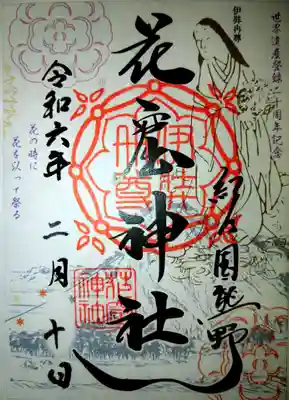 世界遺産登録二十周年記念
伊弉冉尊
紀の国熊野
花窟神社
伊弉
冉尊
花窟
神社
令和六年 二月 十日
花の時に
花を以って祭る